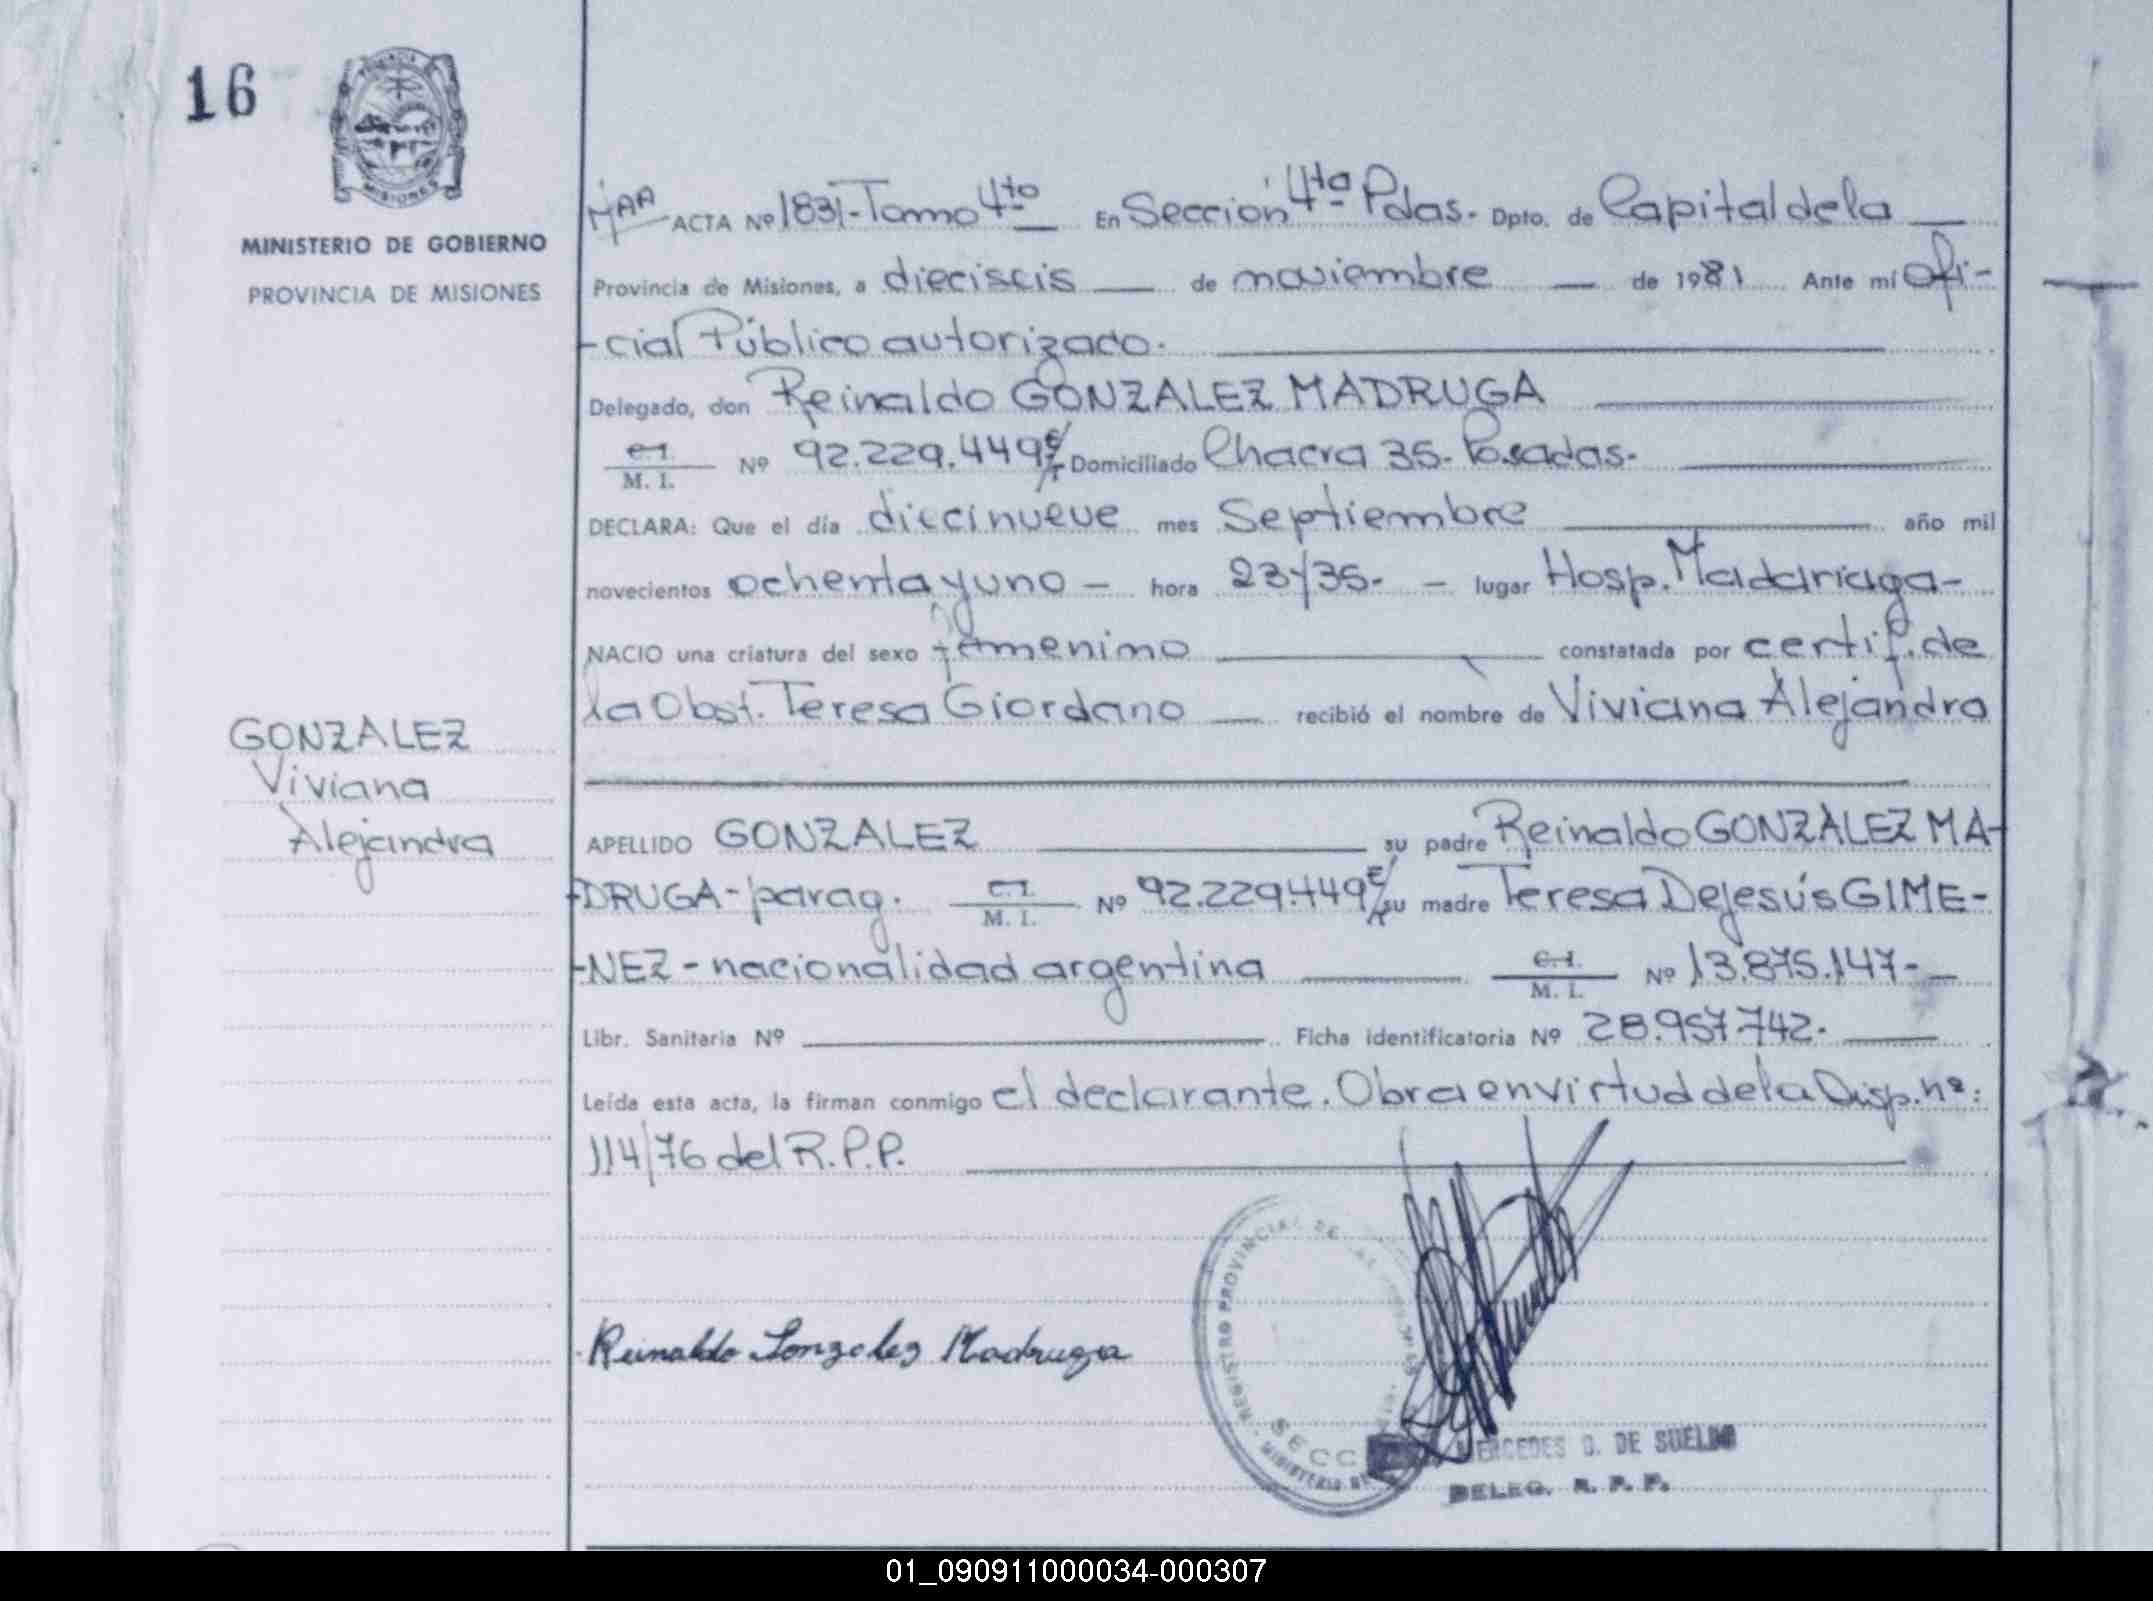 16
MISIONES
MINISTERIO DE GOBIERNO
PROVINCIA DE MISIONES
GONZALEZ
Viviana
Alejandra
MAA ACTA Nº 1831-Tomo 4to En Sección 4ta Pdas. Dpto. de Capital de la
Provincia de Misiones, a dieciseis de noviembre de 1981 Ante mí Ofi-
-cial Público autorizado.
Delegado, don Reinaldo GONZALEZ MADRUGA
C.I. M. I. Nº 92.229.449 Domiciliado Chacra 35. Posadas.
DECLARA: Que el día diecinueve mes Septiembre año mil
novecientos ochenta y uno - hora 23y35. - lugar Hosp. Madariaga-
NACIO una criatura del sexo femenino constatada por certif. de
la Obst. Teresa Giordano recibió el nombre de Viviana Alejandra
APELLIDO GONZALEZ su padre Reinaldo GONZALEZ MA-
-DRUGA - parag. C.I. M. I. Nº 92.229.449 su madre Teresa DeJesús GIME-
-NEZ - nacionalidad argentina C.I. M. I. Nº 13.875.147-
Libr. Sanitaria Nº Ficha identificatoria Nº 28.957.742.
Leída esta acta, la firman conmigo el declarante. Obra en virtud de la Disp. nº:
114/76 del R.P.P.
REGISTRO PROVINCIAL DE LAS
SECC
MINISTERIO DE
Reinaldo Gonzalez Madruga
MERCEDES G. DE SUELDO
DELEG. R. P. P.
01_090911000034-000307